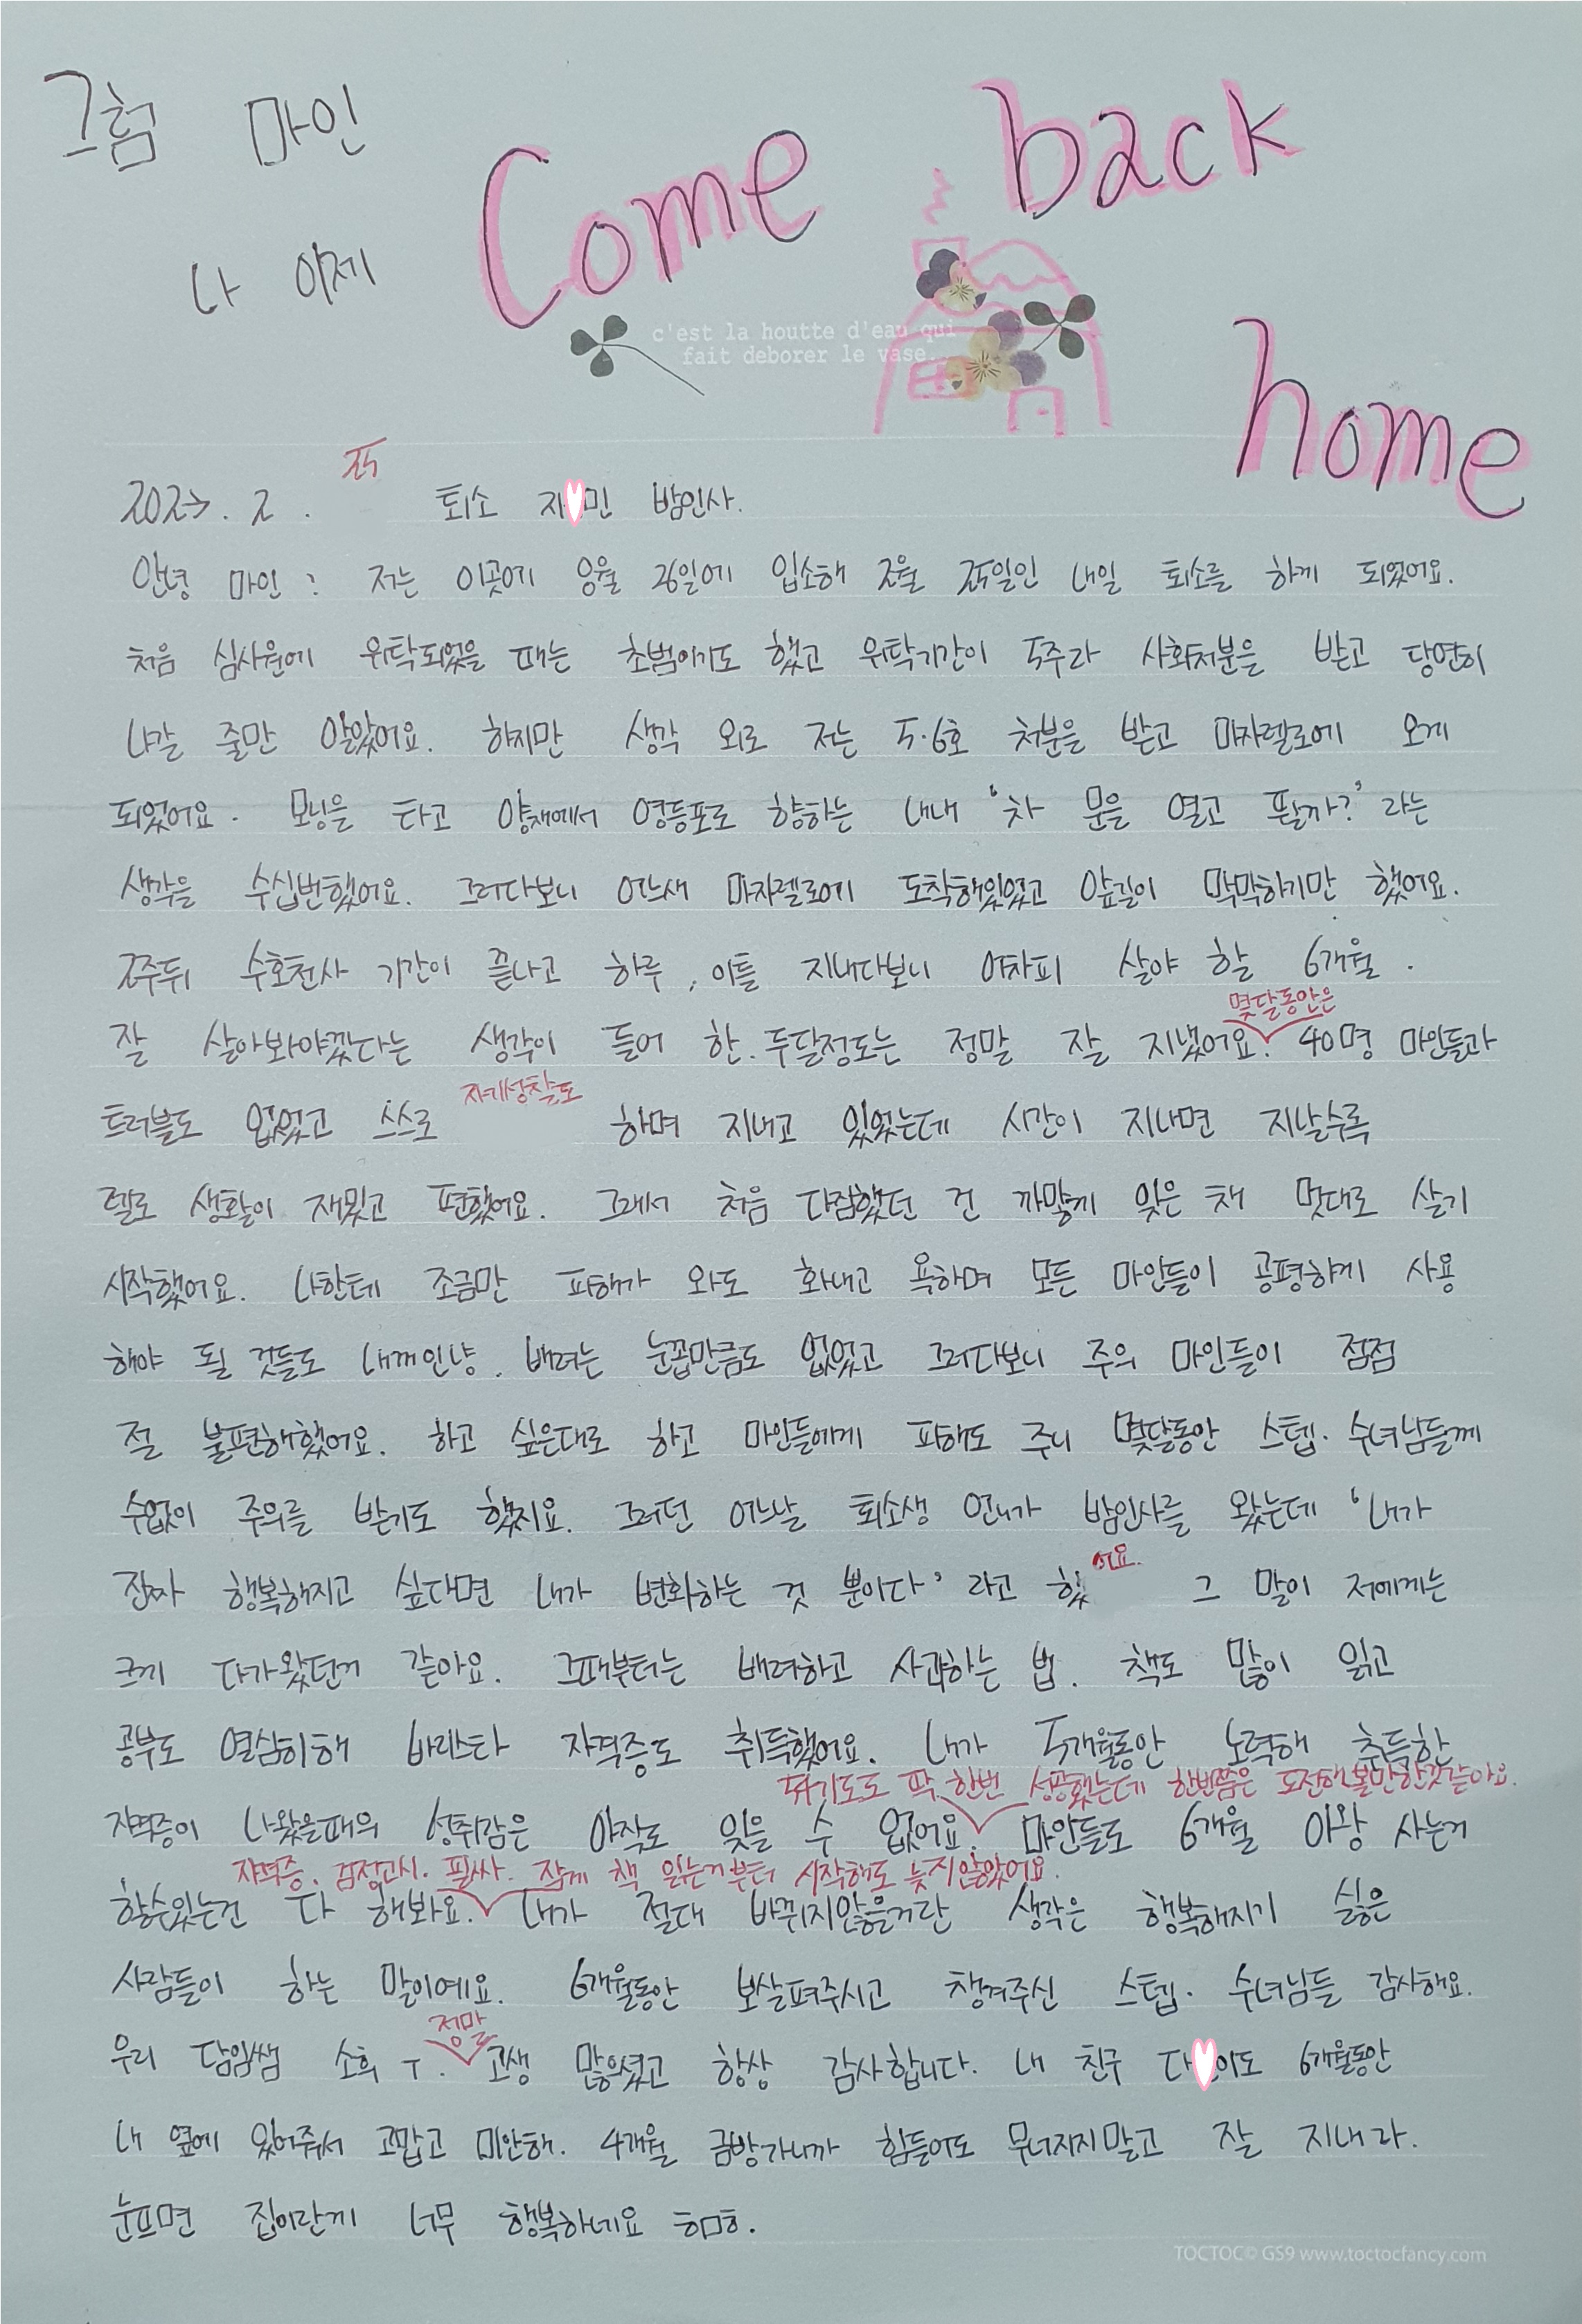 그럼 마인
나 이제
Come back
home
c'est la houtte d'eau qui
fait deborer le vase..
2023. 2. 25 퇴소 지 민 밤인사.
안녕 마인 : 저는 이곳에 8월 26일에 입소해 2월 25일인 내일 퇴소를 하게 되었어요.
처음 심사원에 위탁되었을 때는 초범이기도 했고 위탁기간이 5주라 사회처분을 받고 당연히
나갈 줄만 알았어요. 하지만 생각 외로 저는 5.6호 처분을 받고 마자렐로에 오게
되었어요. 모닝을 타고 양재에서 영등포로 향하는 내내 '차 문을 열고 튈까?' 라는
생각을 수십번했어요. 그러다보니 어느새 마자렐로에 도착해있었고 앞길이 막막하기만 했어요.
2주뒤 수호천사 기간이 끝나고 하루, 이틀 지내다보니 어차피 살아야 할 6개월.
잘 살아봐야겠다는 생각이 들어 한.두달정도는 정말 잘 지냈어요. 몇달동안은 40명 마인들과
트러블도 없었고 스스로 자기성찰도 하며 지내고 있었는데 시간이 지나면 지날수록
렐로 생활이 재밌고 편했어요. 그래서 처음 다짐했던 건 까맣게 잊은 채 멋대로 살기
시작했어요. 나한테 조금만 피해가 와도 화내고 욕하며 모든 마인들이 공평하게 사용
해야 될 것들도 내꺼인냥. 배려는 눈꼽만큼도 없었고 그러다보니 주의 마인들이 점점
절 불편해했어요. 하고 싶은대로 하고 마인들에게 피해도 주니 몇달동안 스텝. 수녀님들께
수없이 주의를 받기도 했지요. 그러던 어느날 퇴소생 언니가 밤인사를 왔는데 '내가
진짜 행복해지고 싶다면 내가 변화하는 것 뿐이다' 라고 했어요. 그 말이 저에게는
크게 다가왔던거 같아요. 그때부터는 배려하고 사과하는 법. 책도 많이 읽고
공부도 열심히해 바리스타 자격증도 취득했어요. 내가 5개월동안 노력해 취득한
자격증이 나왔을때의 성취감은 아직도 잊을 수 없어요. 뛰기도도 딱 한번 성공했는데 한번쯤은 도전해볼만한것같아요. 마인들도 6개월 이왕 사는거
할수있는건 다 해봐요. 자격증. 검정고시. 필싸. 잠깨 책 읽는거부터 시작해도 늦지않았어요. 내가 절대 바뀌지않을거란 생각은 행복해지기 싫은
사람들이 하는 말이예요. 6개월동안 보살펴주시고 챙겨주신 스텝. 수녀님들 감사해요.
우리 담임쌤 소희 T. 정말 고생 많으셨고 항상 감사합니다. 내 친구 다 이도 6개월동안
내 옆에 있어줘서 고맙고 미안해. 4개월 금방가니까 힘들어도 무너지지말고 잘 지내라.
눈뜨면 집이란게 너무 행복하네요 ㅎㅁㅎ.
TOCTOC© GS9 www.toctocfancy.com